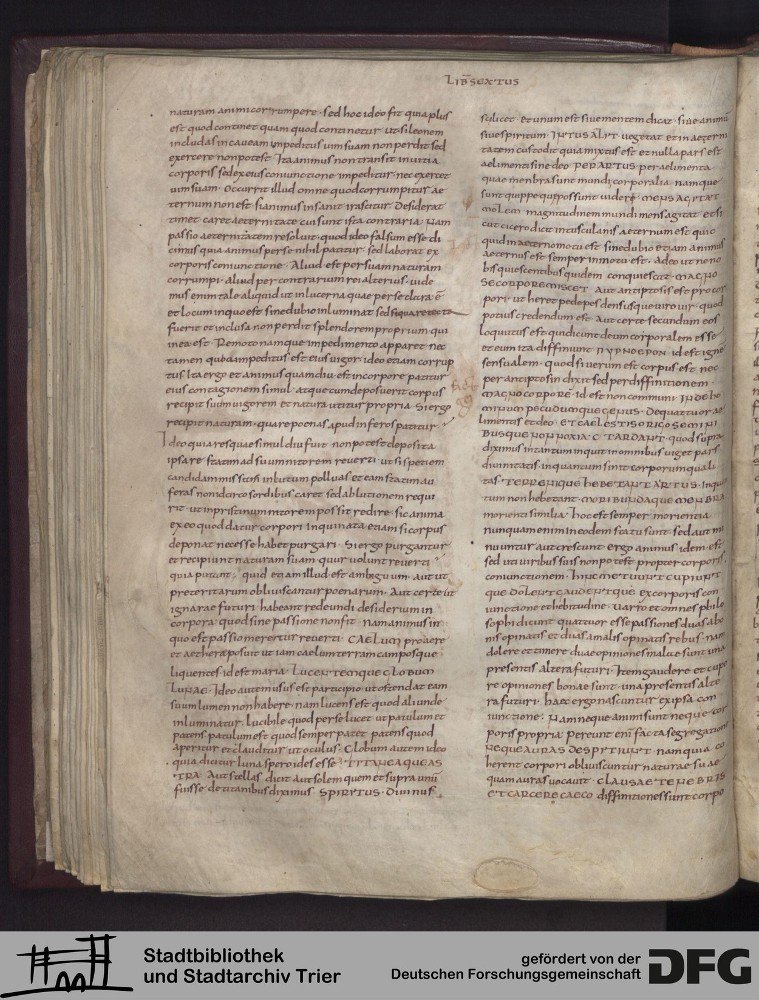 LIB̄ SEXTUS
naturam animi corrumpere · sed hoc ideo fit quia plus
est quod continet quam quod continetur · ut si leonem
includas in caueam impeditus uim suam non perdit sed
exercere non potest · Ita animus non transit in uitia
corporis sed ex eius coniunctione impeditur nec exercet
uim suam · Occurrit illud omne quod corrumpitur ae
ternum non est si animus insanit irascitur desiderat
timet · caret aeternitate cui sunt ista contraria · Nam
passio aeternitatem resoluit · quod ideo falsum esse di
cimus quia animus per se nihil patitur sed laborat ex
corporis coniunctione · Aliud est per suam naturam
corrumpi · aliud per contrarium rei alterius · uide
mus enim tale aliquid ut in lucerna quae per se clara ē
et locum in quo est sine dubio inluminat sed si qua re tecta
fuerit et inclusa non perdit splendorem proprium qui
in ea est · Remoto namque impedimento apparet · nec
tamen quia impeditus est eius uigor · ideo etiam corrup
tus Ita ergo et animus quamdiu est in corpore patitur
eius contagionem simul atque cum deposuerit corpus
recipit suum uigorem et natura utitur propria · Si ergo
recipit naturam · quare poenas apud inferos patitur
Ideo quia res quae simul diu fuit non potest deposita
ipsa re statim ad suum nitorem reuerti ut si speciem
candidam missus in lutum polluas et eam statim au
feras non idcirco sordibus caret sed ablutionem requi
rit · ut in pristinum nitorem possit redire · sic anima
ex eo quod datur corpori inquinata etiam si corpus
deponat necesse habet purgari · Si ergo purgantur
et recipiunt naturam suam quur uolunt reuerti
quia potunt · quid etiam illud est ambiguum · aut ut
preteritarum obliuiscantur poenarum · Aut certe ut
ignarae futuri habeant redeundi desiderium in
corpora quod sine passione non fit · nam animus in
quo est passio meretur reuerti · CAELUM pro aere
et aethera posuit ut iam caelum terram camposque
liquentes · id est maria · LUCENTEMQUE GLOBUM
LUNAE · Ideo autem usus est participio ut ostendat eam
suum lumen non habere · nam lucens est quod aliunde
inluminatur · lucibile quod per se lucet ut patulum et
patens patulum est quod semper patet patens quod
aperitur et clauditur ut oculus · Globum autem ideo
quia dicitur luna speroides esse · TITANEAQUE AS
TRA · Aut stellas dicit aut solem quem et supra unū
fuisse de titanibus diximus SPIRITUS · Diuinus
scilicet et unum est siue mentem dicat · siue animū
siue spiritum · INTUS ALIT · uegetat et in aetern
tatem custodit quia mixtus est et nulla pars est
aelimenti sine deo PER ARTUS · per aelimenta
quae menbra sunt mundi corporalia namque
sunt quippe quae possunt uideri · MENS AGITAT
MOLEM · magnitudinem mundi mens agitat et si
cut cicero dicit in tusculanis aeternum est quic
quid in aeterno motu est sine dubio etiam animus
aeternus est semper in motu est · Adeo ut ne no
bis quiescentibus quidem conquiescat · MAGNO
SE CORPORE MISCET · Aut antiptosis est pro cor
pori · ut heret pede pes densusque uiro uir · quod
potius credendum est · Aut certe secundum eos
loquutus est qui dicunt deum corporalem esse
et eum ita diffiniunt ΠΥΡ ΝΟΕΡΟΝ · id est igne
sensualem · quod si uerum est corpus est nec
per anciptosin dixit sed per diffinitionem ·
MAGNO CORPORE · id est non communi · INDE HO
MINUM PECUDUMQUE GENUS · De quattuor ae
limentis et deo · ET CAELESTIS ORIGO SEMINI
BUS QUE NON NOXIA · C̄ TARDANT · quod supra
diximus in tantum inquit in omnibus uiget pars
diuinitatis in quantum sinit corporum quali
tas · TERRENIQUE HEBETANT ARTUS · Inqua
tum non hebetant · MORIBUNDAQUE MENBRA
morienti similia · hoc est semper morientia
nunquam enim in eodem statu sunt · sed aut mi
nuuntur aut crescunt ergo animus idem est
sed uti uiribus suis non potest propter corporis
coniunctionem · HINC METUUNT CUPIUNT
QUE DOLENT GAUDENTQUE ex corporis con
iunctione et hebitudine · Uarro et omnes philo
sophi dicunt quattuor esse passiones duas a bo
nis opinatis et duas a malis opinatis rebus · nam
dolere et timere duae opiniones malae sunt una
presentis altera futuri · Item gaudere et cupe
re opiniones bonae sunt · una presentis alte
ra futuri · haec ergo nascuntur ex ipsa con
iunctione · Nam neque animi sunt neque cor
poris propria · pereunt enī facta segregatione
NEQUE AURAS DESPICIUNT namquia co
herent corpori obliuiscuntur naturae suae
quam auras uocauit · CLAUSAE TENEBRIS
ET CARCERE CAECO diffinitiones sunt corpo
Stadtbibliothek
und Stadtarchiv Trier
gefördert von der
Deutschen Forschungsgemeinschaft
DFG